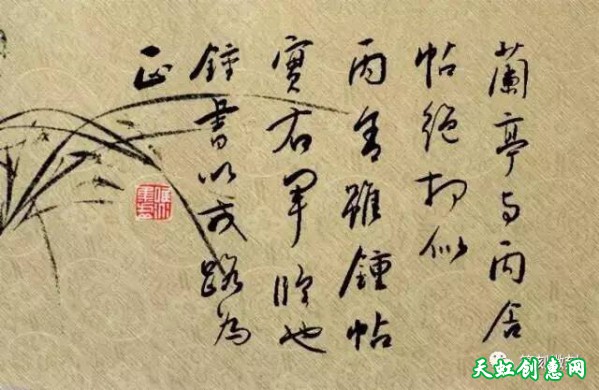 蘭亭与丙舍
帖絕相似
丙舍雖鍾帖
實右軍臨也
鍾書以戎路為
正
天虹创惠网